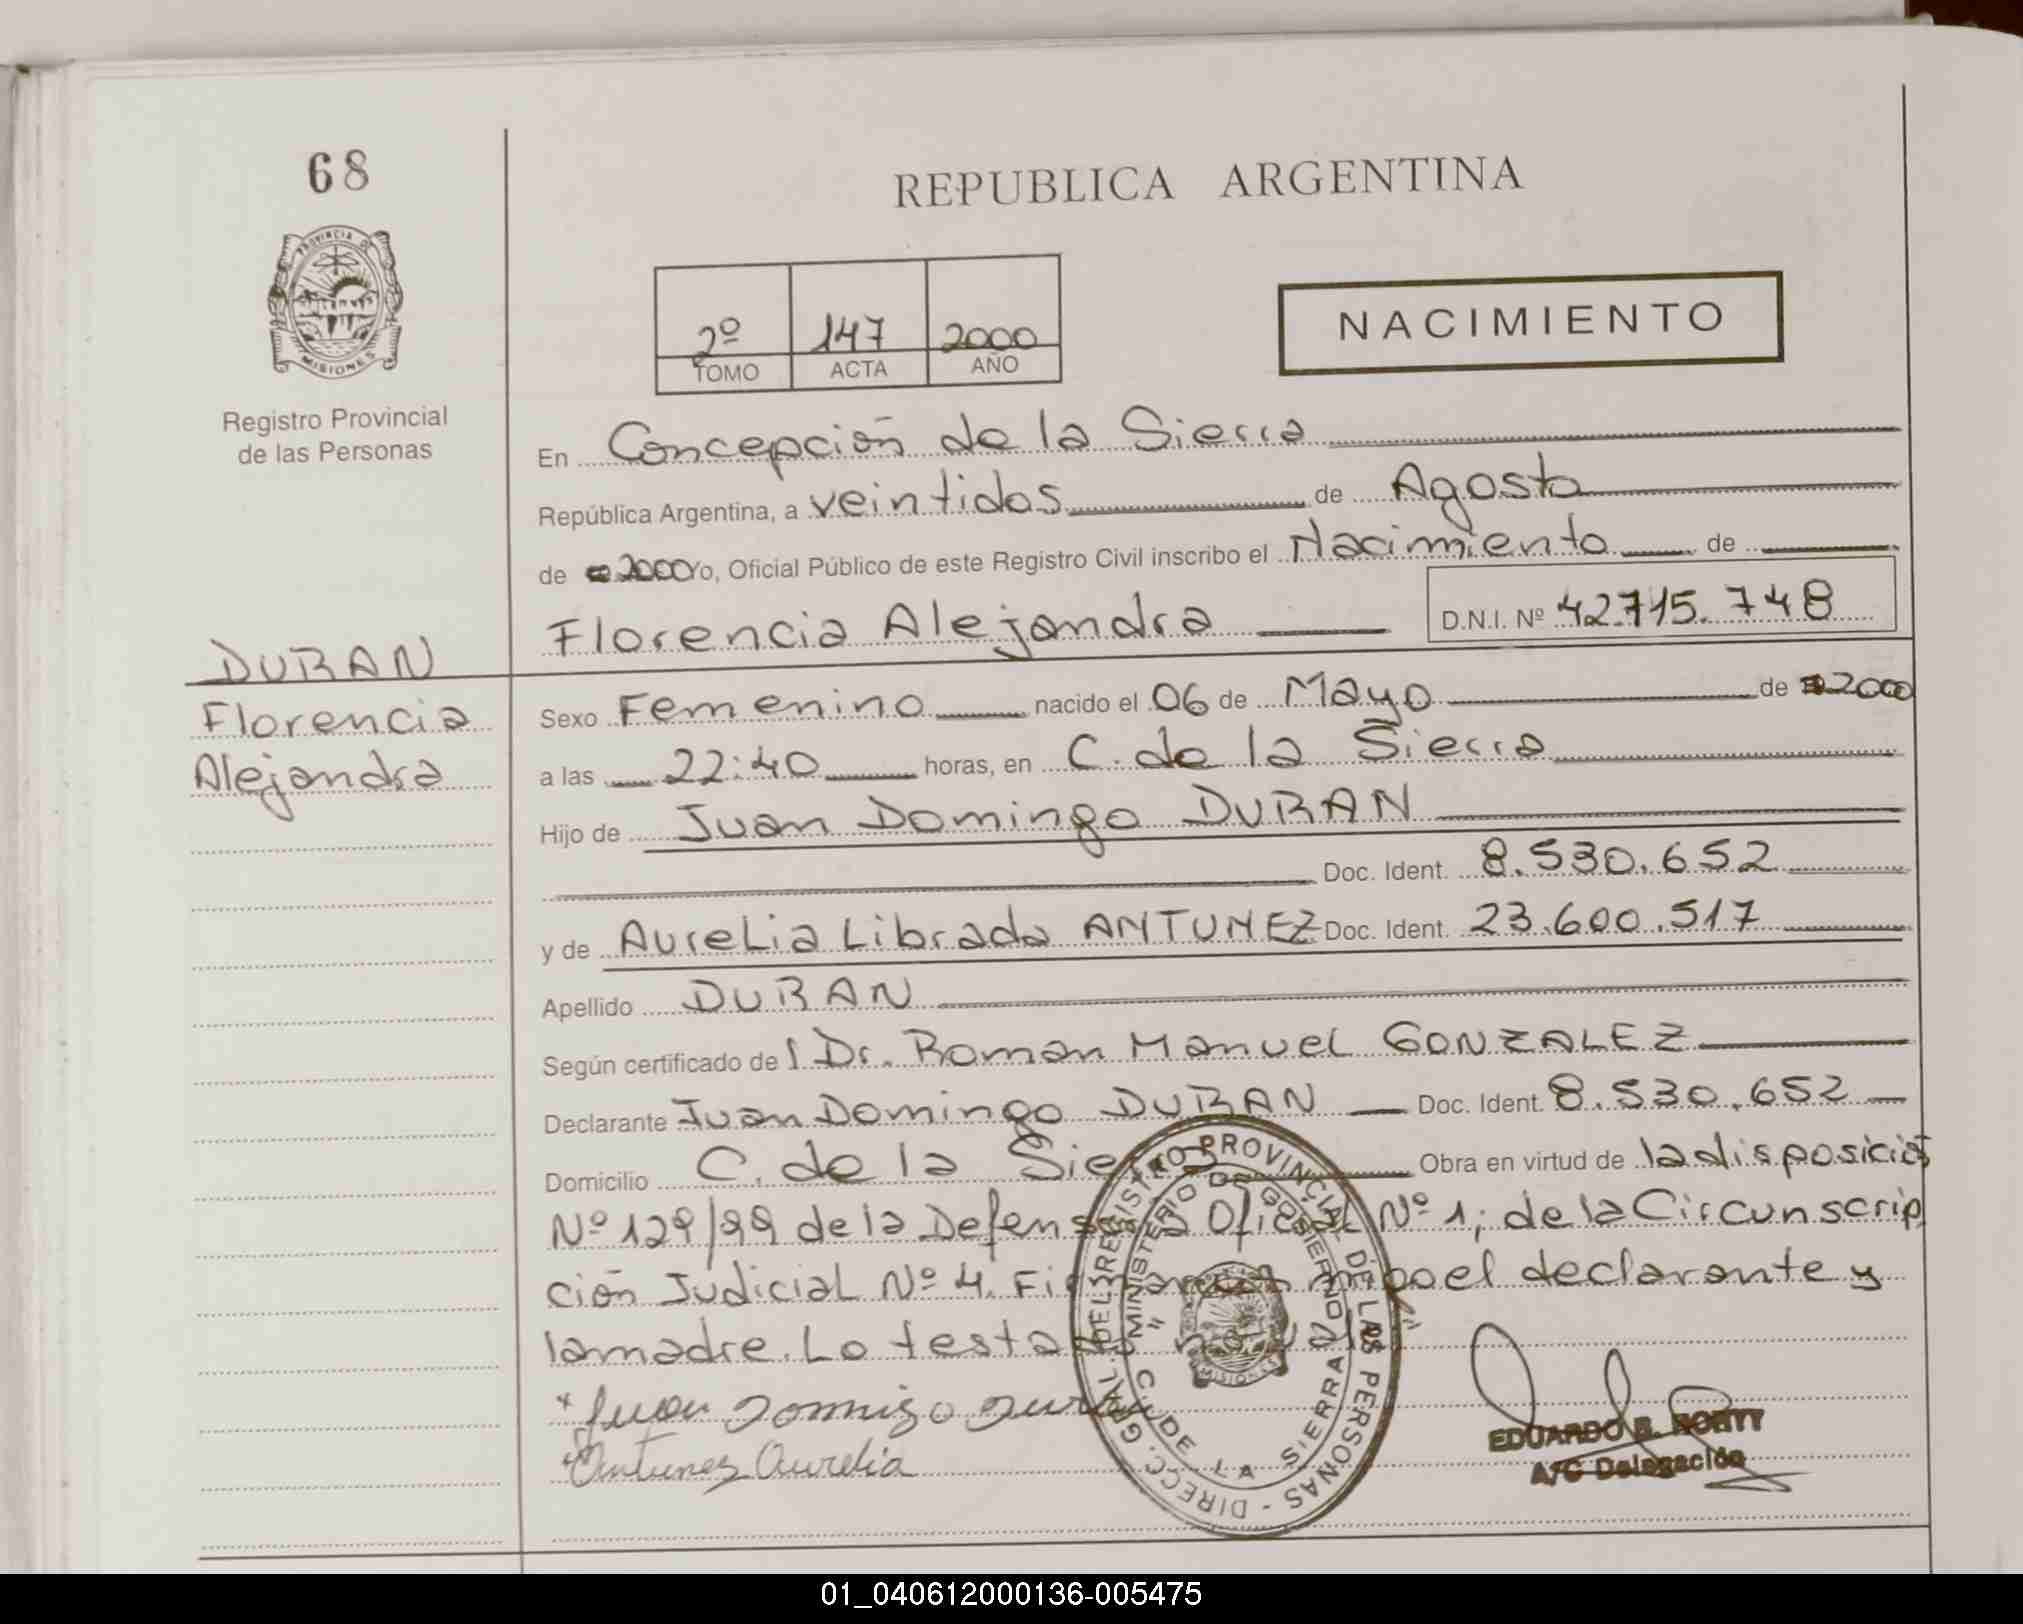 68
REPUBLICA ARGENTINA
PROVINCIA DE MISIONES
2º 147 2000
TOMO ACTA AÑO
NACIMIENTO
Registro Provincial
de las Personas
En Concepción de la Sierra
República Argentina, a veintidos de Agosto
de 2000 Yo, Oficial Público de este Registro Civil inscribo el Nacimiento de
Florencia Alejandra D.N.I. Nº 42.715.748
DURAN
Florencia
Alejandra
Sexo Femenino nacido el 06 de Mayo de 2000
a las 22:40 horas, en C. de la Sierra
Hijo de Juan Domingo DURAN
Doc. Ident. 8.530.652
y de Aurelia Librada ANTUNEZ Doc. Ident. 23.600.517
Apellido DURAN
Según certificado de l Dr. Roman Manuel GONZALEZ
Declarante Juan Domingo DURAN Doc. Ident. 8.530.652
Domicilio C. de la Sierra Obra en virtud de la disposición
Nº 129/99 de la Defensoria Oficial Nº 1; de la Circunscrip
ción Judicial Nº 4. Firman el declarante y
la madre. Lo testado
* Juan Domingo Duran
* Antunez Aurelia
DIRECC. GRAL. DEL REGISTRO PROVINCIAL DE LAS PERSONAS -
MINISTERIO DE GOBIERNO
" C. DE LA SIERRA "
MISIONES
EDUARDO B.
A/C Delegación
01_040612000136-005475